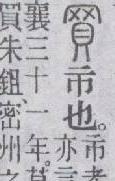 買市也。市者
亦言
襄三十一年。莒
買朱鉏、密州之